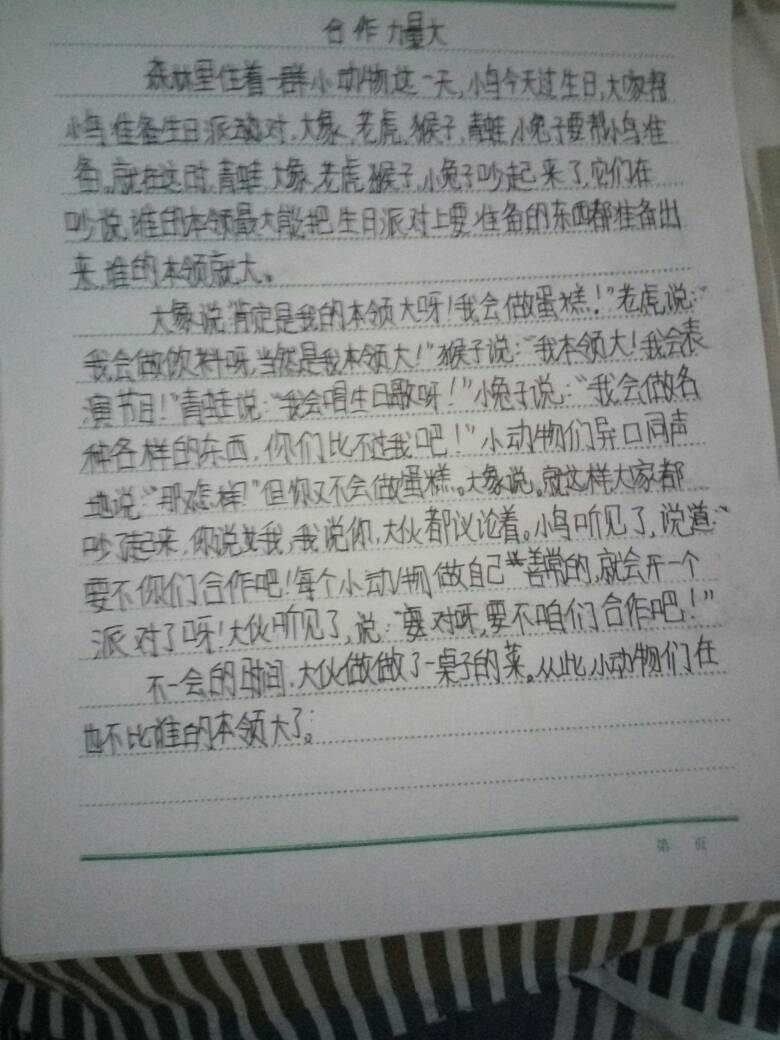 合作力量大
森林里住着一群小动物这一天,小鸟今天过生日,大家帮
小鸟准备生日派对.大象,老虎,猴子,青蛙,小兔子要帮小鸟准
备。就在这时,青蛙,大象,老虎,猴子,小兔子吵起来了,它们在
吵说,谁的本领最大能把生日派对上要准备的东西都准备出
来,谁的本领就大。
大象说"肯定是我的本领大呀!我会做蛋糕!"老虎说:"
我会做饮料呀,当然是我本领大!"猴子说:"我本领大!我会表
演节目!"青蛙说:"我会唱生日歌呀!"小兔子说:"我会做各
种各样的东西,你们比不过我吧!"小动物们异口同声
地说:"那怎样!"但你又不会做蛋糕。大象说。就这样大家都
吵了起来,你说我,我说你,大伙都议论着。小鸟听见了,说道:"
要不你们合作吧!每个小动物做自己善常的,就会开一个
派对了呀!大伙听见了,说:"对呀,要不咱们合作吧!"
不一会的时间.大伙做做了一桌子的菜。从此,小动物们在
也不比谁的本领大了。
第 页